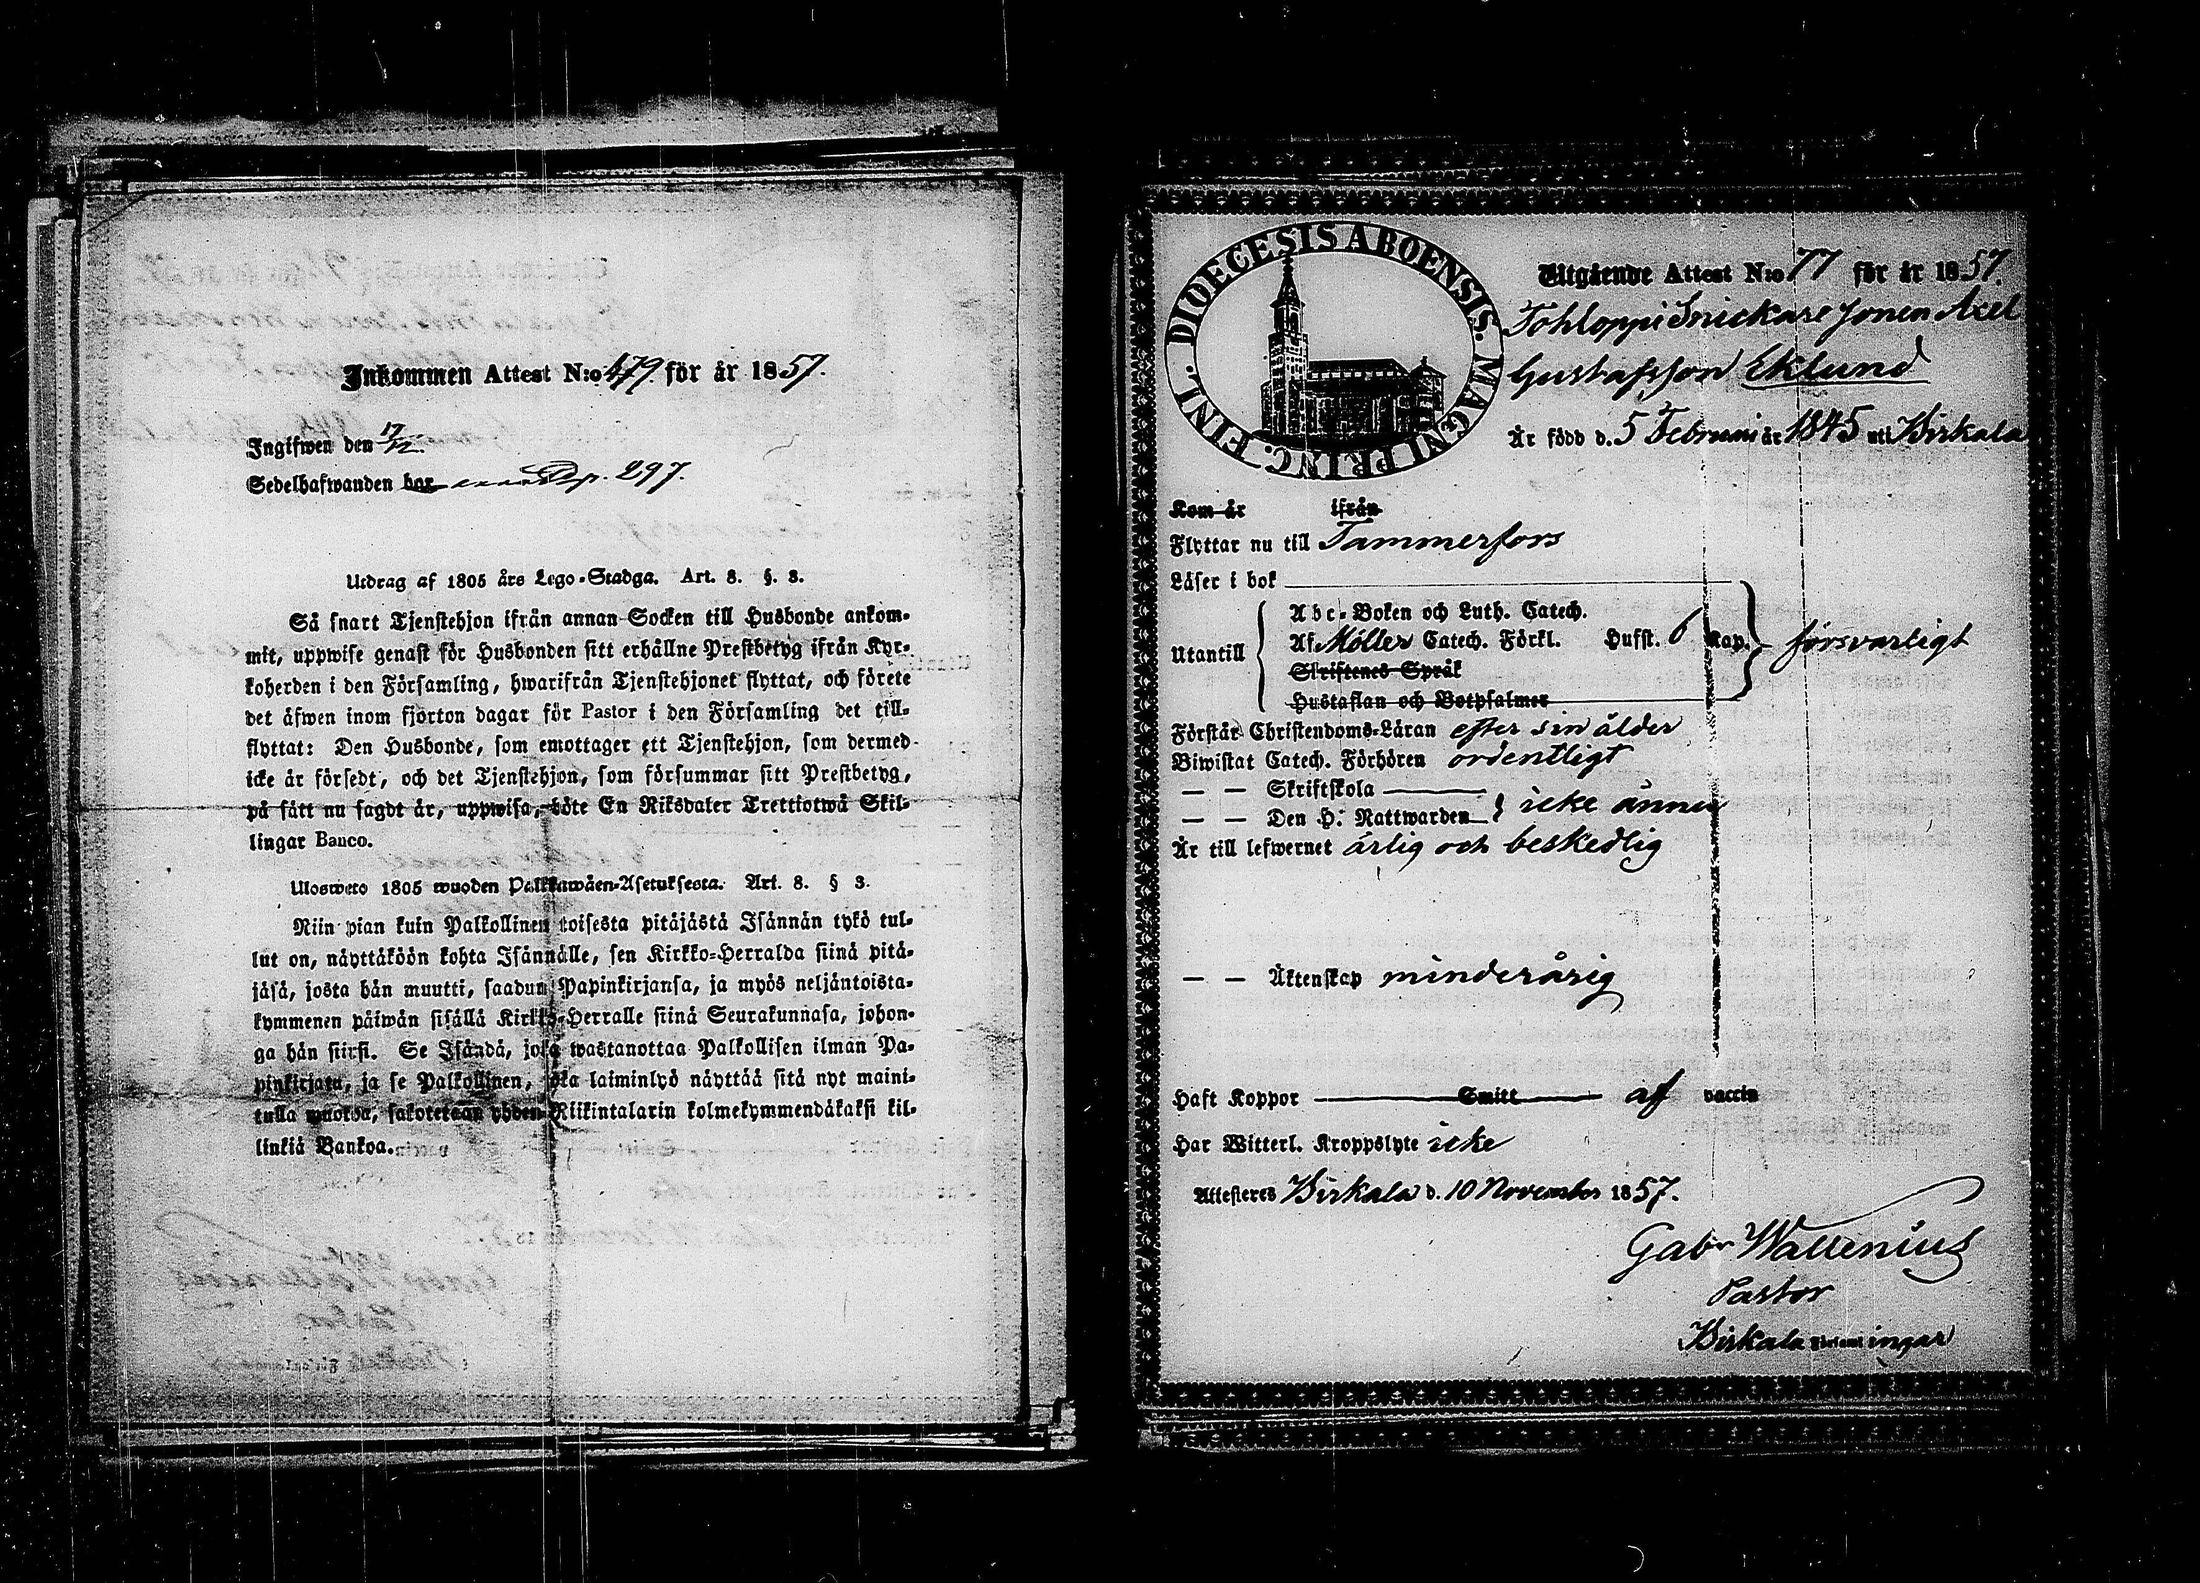 Inkommen Attest N:o 479. för år 1857.
Ingifwen den 17/12.
Sedelhafwanden har p. 297.
Utdrag af 1805 års Lego-Stadga. Art. 8. §. 3.
Så snart Tjenstehjon ifrån annan Socken till Husbonde ankom-
mit, uppwise genast för Husbonden sitt erhållne Prestbetyg ifrån Kyr-
koherden i den Församling, hwarifrån Tjenstehjonet flyttat, och förete
det äfwen inom fjorton dagar för Pastor i den Församling det till-
flyttat: Den Husbonde, som emottager ett Tjenstehjon, som dermed
icke är försedt, och det Tjenstehjon, som försummar sitt Prestbetyg,
på sått nu sagdt är, uppwisa, böte En Riksdaler Trettiotwå Skil-
lingar Banco.
Ulosweto 1805 wuoden Palkkawäen-Asetuksesta. Art. 8. § 3.
Niin pian kuin Palkollinen toisesta pitäjästä Isännän tykö tul-
lut on, näyttäköön kohta Isännälle, sen Kirkko-Herralda siinä pitä-
jäsä, josta hän muutti, saadun Papinkirjansa, ja myös neljäntoista-
kymmenen päiwän sisällä Kirkko-Herralle siinä Seurakunnasa, johon-
ga hän siirsi. Se Isändä, joka wastanottaa Palkollisen ilman Pa-
pinkirjata, ja se Palkollinen, joka laiminlyö näyttää sitä nyt maini-
tulla muokoa, sakotetaan yhden Riikintalarin kolmekymmendäkaksi kil-
linkiä Bankoa.
DIOECESIS ABOENSIS. MAGNI PRINC. FINL.
Utgående Attest N:o 77 för år 1857.
Tohloppi Snickare Sonen Axel
Gustafsson Eklund
Är född d. 5 Februari år 1845 uti Birkala
Kom år ifrån
Flyttar nu till Tammerfors
Läser i bok
Abc-Boken och Luth. Catech.
Utantill Af Möller Catech. Förkl. Hufst. 6 Kap. försvarligt
Skriftenes Språk
Hustaflan och Botpsalmer
Förstår Christendoms-Läran efter sin ålder
Biwistat Catech. Förhören ordentligt
— — Skriftskola
— — Den H. Nattwarden icke ännu
Är till lefwernet ärlig och beskedlig
— — Äktenskap minderårig
Haft Koppor Smitt af vaccin
Har Witterl. Kroppslyte icke
Attesteres Birkala d. 10 November 1857.
Gabr Wallenius
Pastor
Birkala Församlingar